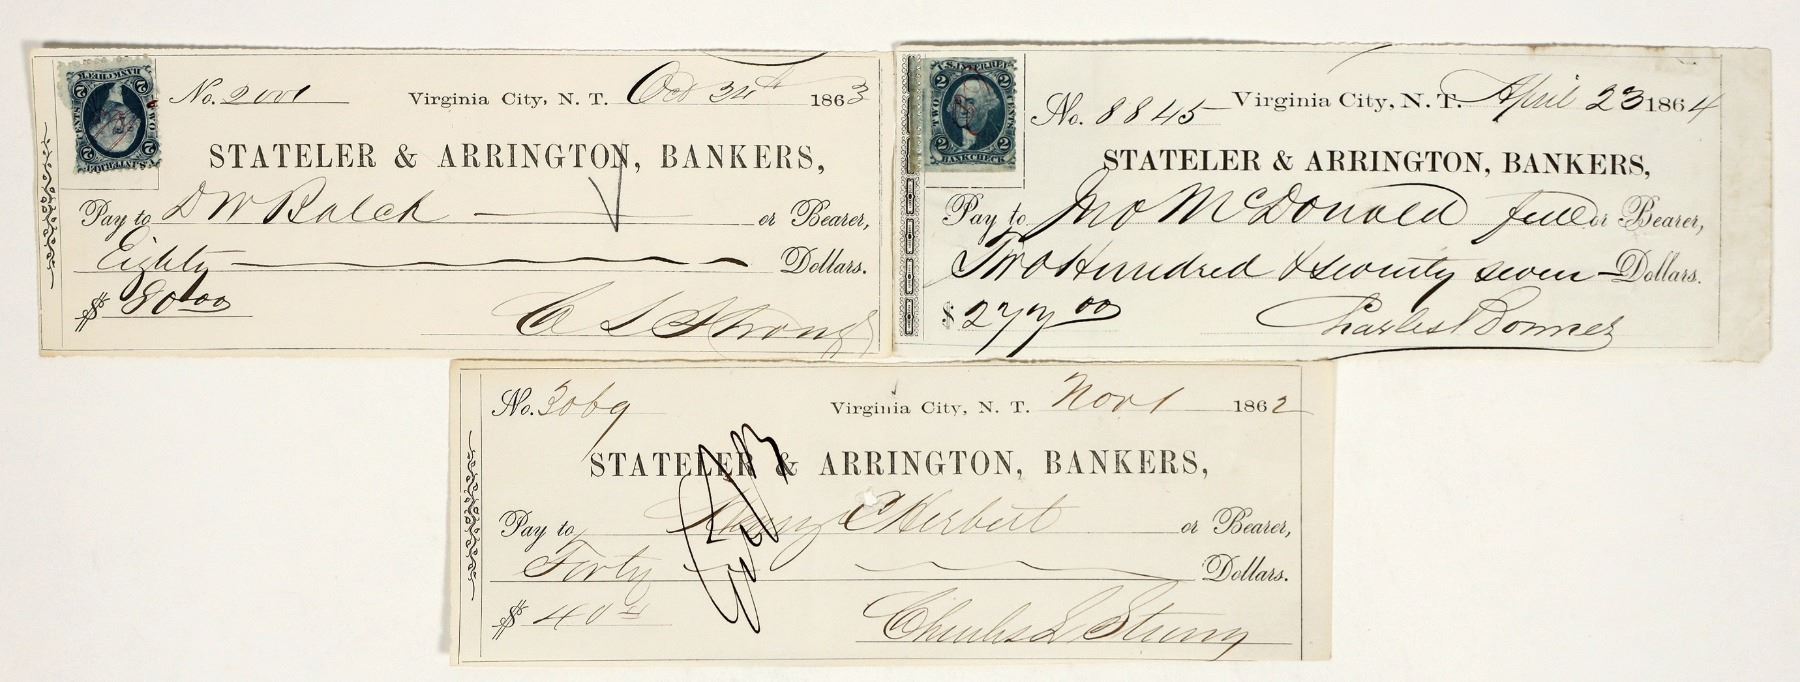 No. 2001 Virginia City, N. T. Oct 34th 1863
STATELER & ARRINGTON, BANKERS,
Pay to D W Balch or Bearer,
Eighty Dollars.
$ 80.00
C L Strong
2 U.S. INTER. REV. 2
TWO CENTS
2 BANK CHECK 2
No. 8845 Virginia City, N. T. April 23 1864
STATELER & ARRINGTON, BANKERS,
Pay to Jno McDonald full or Bearer,
Two Hundred & seventy seven Dollars.
$ 277.00
Charles Bonner
2 U.S. INTER. REV. 2
TWO CENTS
2 BANK CHECK 2
No. 3069 Virginia City, N. T. Nov 1 1862
STATELER & ARRINGTON, BANKERS,
Pay to Henry C Herbert or Bearer,
Forty Dollars.
$ 40
Charles L Strong